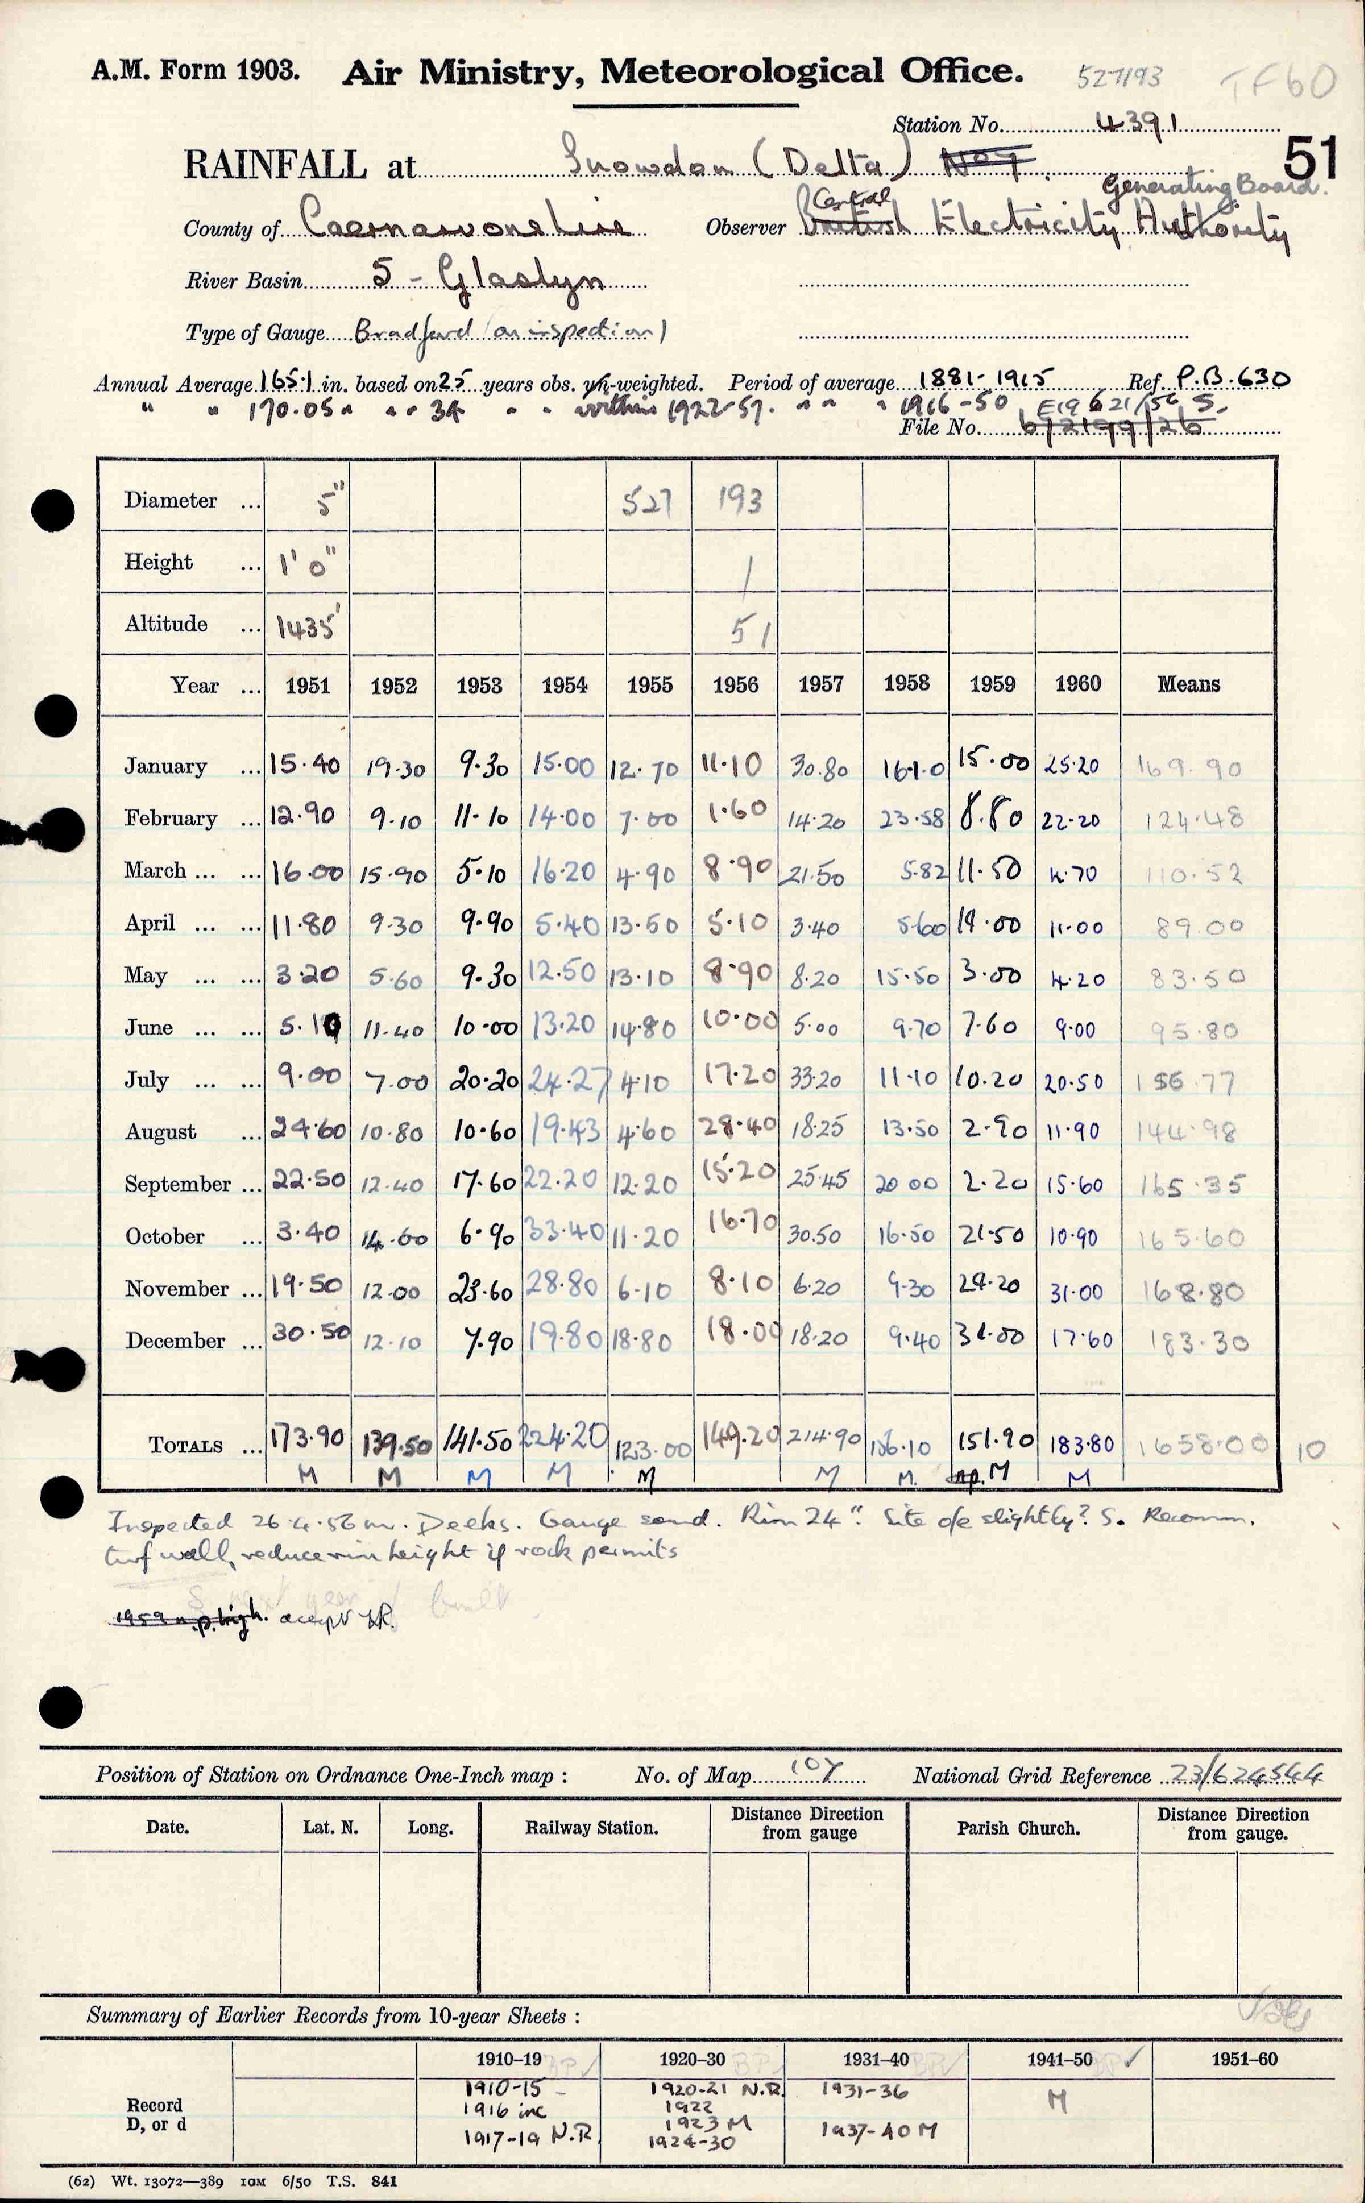 A.M. Form 1903. Air Ministry, Meteorological Office. 527193 TF60
Station No. 4391
RAINFALL at Snowdon (Delta) No 9. 51
Generating Board.
County of Caernarvonshire Observer British Central Electricity Authority
River Basin 5 - Glaslyn
Type of Gauge Bradford (on inspection)
Annual Average 165.1 in. based on 25 years obs. un-weighted. Period of average 1881-1915 Ref. P.B.630
" " 170.05 " " " 34 " " within 1922-57. " " " 1916-50
File No. 6/2199/26
Diameter ... 5" 527 193
Height ... 1' 0" 1
Altitude ... 1435' 51
Year ... 1951 1952 1953 1954 1955 1956 1957 1958 1959 1960 Means
January ... 15.40 19.30 9.30 15.00 12.70 11.10 30.80 16.10 15.00 25.20 169.90
February ... 12.90 9.10 11.10 14.00 7.00 1.60 14.20 23.58 8.80 22.20 124.48
March ... ... 16.00 15.90 5.10 16.20 4.90 8.90 21.50 5.82 11.50 4.70 110.52
April ... ... 11.80 9.30 9.90 5.40 13.50 5.10 3.40 5.60 14.00 11.00 89.00
May ... ... 3.20 5.60 9.30 12.50 13.10 8.90 8.20 15.50 3.00 4.20 83.50
June ... ... 5.10 11.40 10.00 13.20 14.80 10.00 5.00 9.70 7.60 9.00 95.80
July ... ... 9.00 7.00 20.20 24.27 4.10 17.20 33.20 11.10 10.20 20.50 156.77
August ... 24.60 10.80 10.60 19.43 4.60 28.40 18.25 13.50 2.90 11.90 144.98
September ... 22.50 12.40 17.60 22.20 12.20 15.20 25.45 20.00 2.20 15.60 165.35
October ... 3.40 14.60 6.90 33.40 11.20 16.70 30.50 16.50 21.50 10.90 165.60
November ... 19.50 12.00 23.60 28.80 6.10 8.10 6.20 9.30 24.20 31.00 168.80
December ... 30.50 12.10 7.90 19.80 18.80 18.00 18.20 9.40 31.00 17.60 183.30
TOTALS ... 173.90 139.50 141.50 224.20 123.00 149.20 214.90 156.10 151.90 183.80 1658.00 10
M M M M M M M. np. M M
Inspected 26.4.56 Mr. Deeks. Gauge sound. Rim 24". Site o/e slightly? S. Recomm.
turf wall, reduce rim height if rock permits
1959 n.p. high. accept
Position of Station on Ordnance One-Inch map : No. of Map 107 National Grid Reference 23/624544
Date. Lat. N. Long. Railway Station. Distance Direction from gauge Parish Church. Distance Direction from gauge.
Summary of Earlier Records from 10-year Sheets :
1910-19 1920-30 1931-40 1941-50 1951-60
Record D, or d
1910-15 1920-21 N.R. 1931-36 M
1916 inc 1922
1917-19 N.R. 1923 M 1937-40 M
1924-30
(62) Wt. 13072—389 10M 6/50 T.S. 841